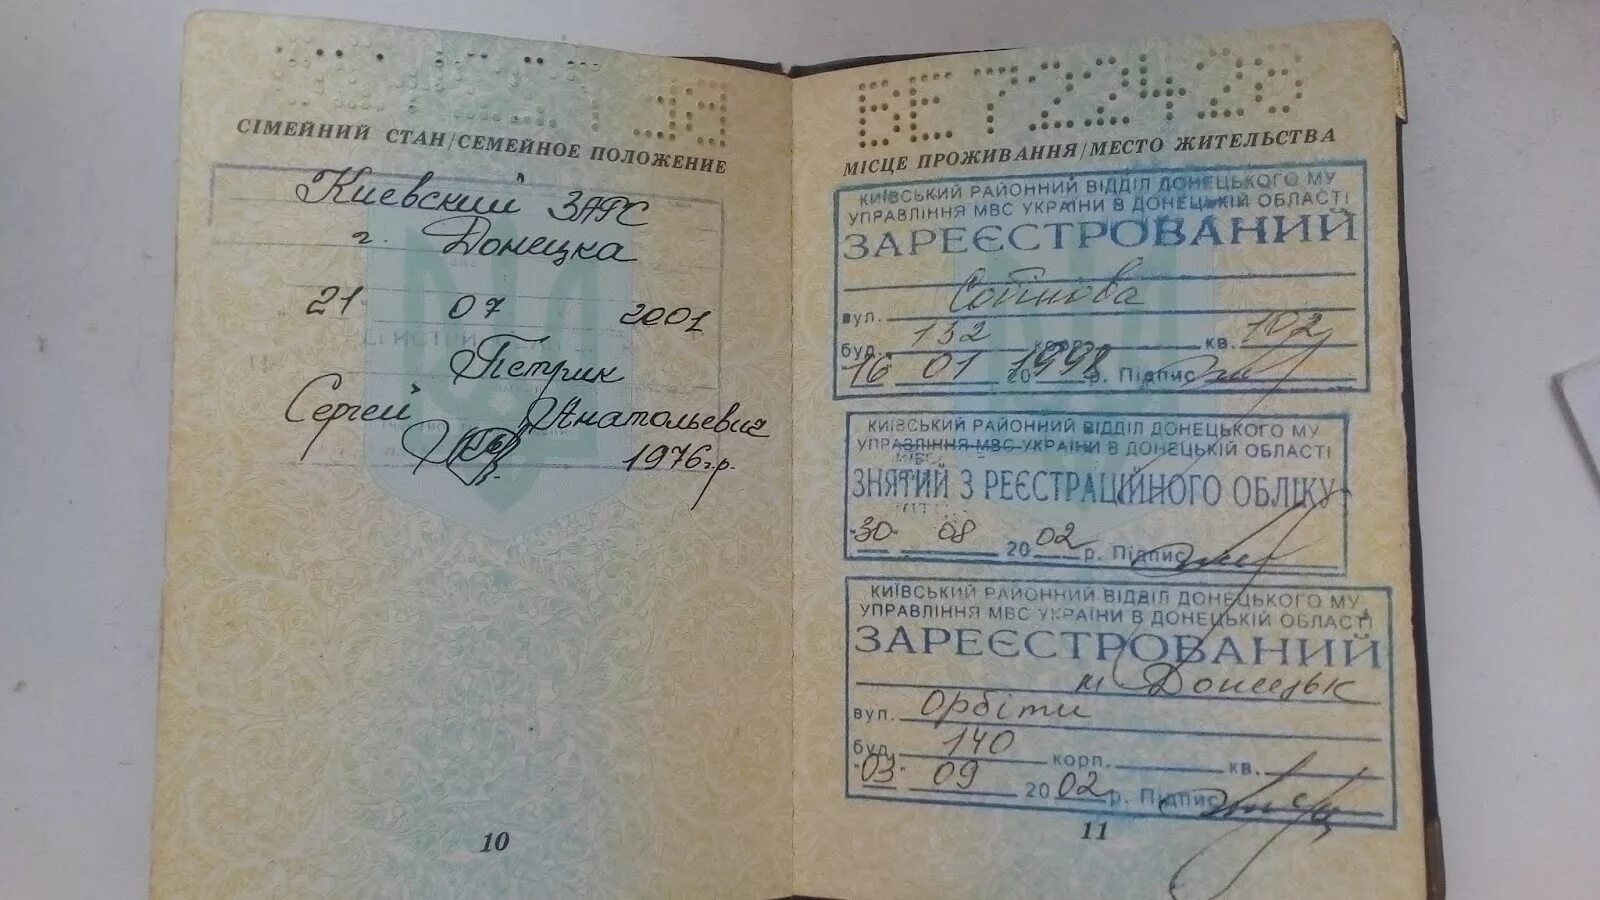 СІМЕЙНИЙ СТАН/СЕМЕЙНОЕ ПОЛОЖЕНИЕ
Киевский ЗАГС
г. Донецка
21 07 2001
Петрик
Сергей Анатольевич
1976 г.р.
10
ВЕ722428
МІСЦЕ ПРОЖИВАННЯ/МЕСТО ЖИТЕЛЬСТВА
КИЇВСЬКИЙ РАЙОННИЙ ВІДДІЛ ДОНЕЦЬКОГО МУ
УПРАВЛІННЯ МВС УКРАЇНИ В ДОНЕЦЬКІЙ ОБЛАСТІ
ЗАРЕЄСТРОВАНИЙ
вул.
буд. 132 корп. кв. 102
16 01 1998 р. Підпис
КИЇВСЬКИЙ РАЙОННИЙ ВІДДІЛ ДОНЕЦЬКОГО МУ
УПРАВЛІННЯ МВС УКРАЇНИ В ДОНЕЦЬКІЙ ОБЛАСТІ
ЗНЯТИЙ З РЕЄСТРАЦІЙНОГО ОБЛІКУ
30 08 2002 р. Підпис
КИЇВСЬКИЙ РАЙОННИЙ ВІДДІЛ ДОНЕЦЬКОГО МУ
УПРАВЛІННЯ МВС УКРАЇНИ В ДОНЕЦЬКІЙ ОБЛАСТІ
ЗАРЕЄСТРОВАНИЙ
м Донецьк
вул. Орбіти
буд. 140 корп. кв.
03 09 2002 р. Підпис
11